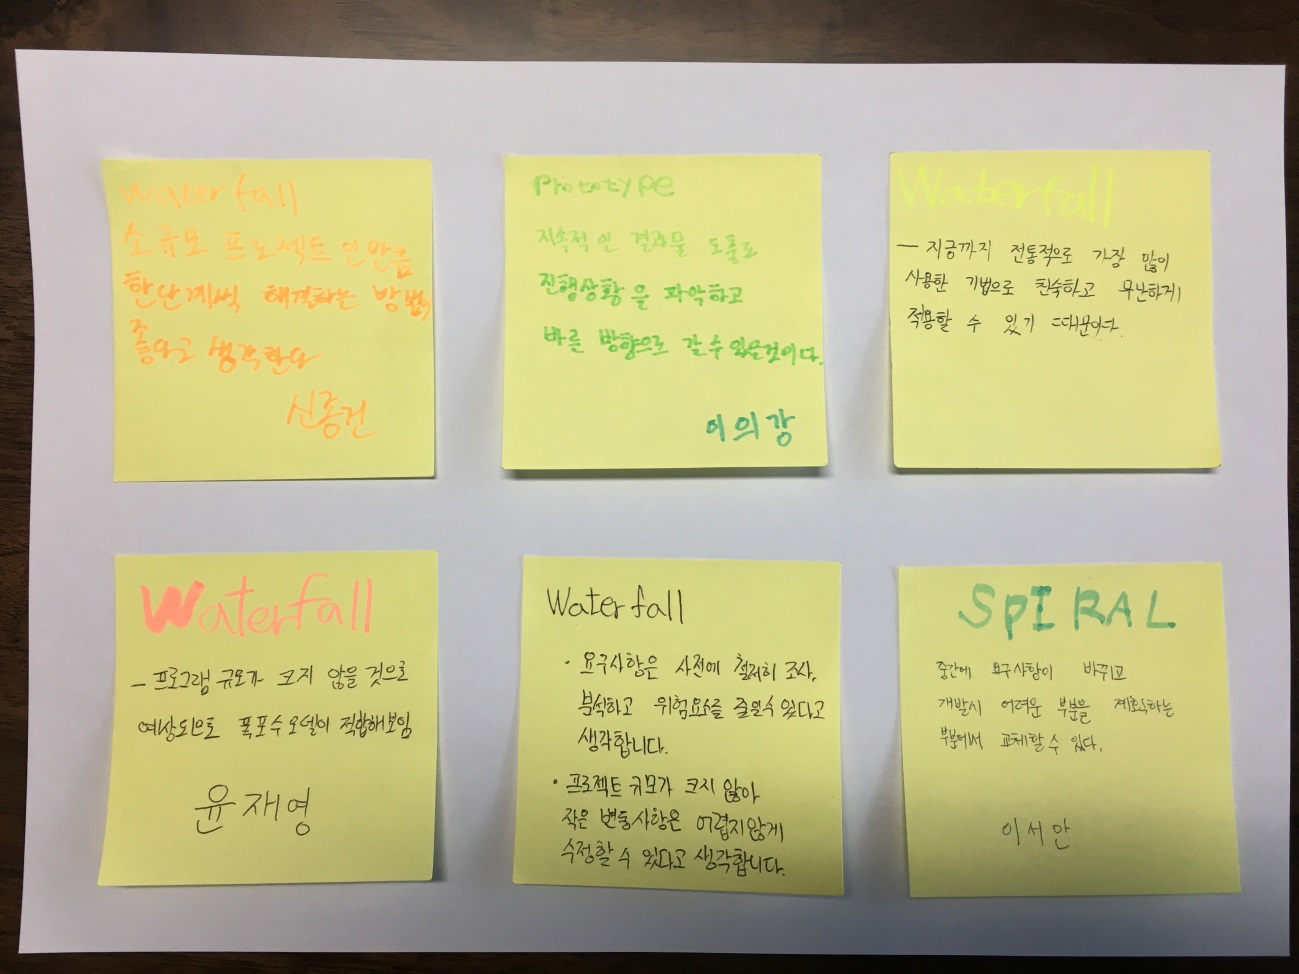 Waterfall
소규모 프로젝트 인만큼
한단계씩 해결하는 방법이
좋다고 생각한다
신종건
Prototype
지속적인 결과물 도출로
진행상황을 파악하고
바른 방향으로 갈 수 있을것이다.
이의강
Waterfall
— 지금까지 전통적으로 가장 많이
사용한 기법으로 친숙하고 무난하게
적용할 수 있기 때문이다.
Waterfall
- 프로그램 규모가 크지 않을 것으로
예상되므로 폭포수 모델이 적합해보임
윤재영
Waterfall
· 요구사항은 사전에 철저히 조사,
분석하고 위험요소를 줄일수 있다고
생각합니다.
· 프로젝트 규모가 크지 않아
작은 변동사항은 어렵지않게
수정할 수 있다고 생각합니다.
SpIRAL
중간에 요구사항이 바뀌고
개발시 어려운 부분을 계획하는
부분에서 교체할 수 있다.
이서안